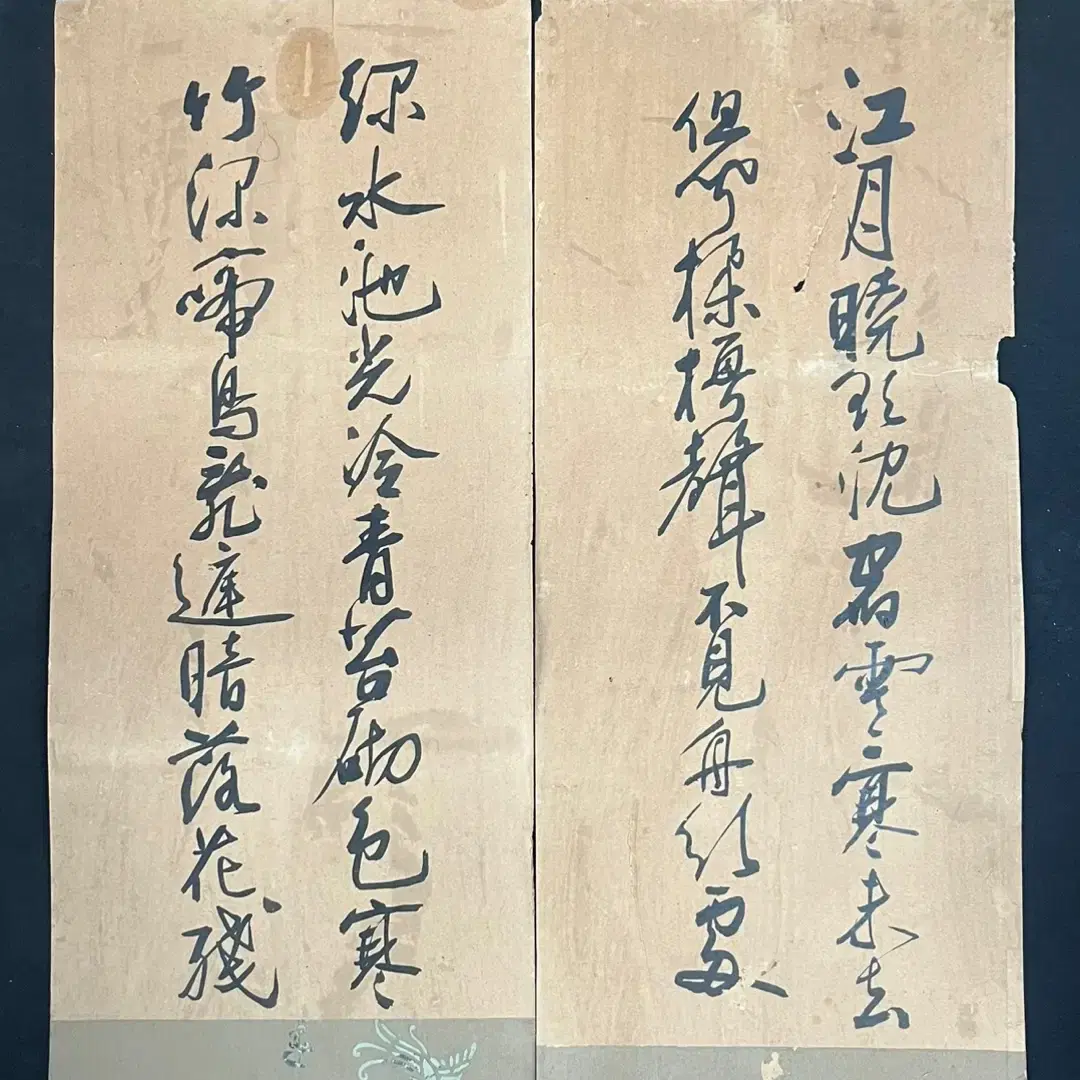 江月曉欲沈雲寒未去
但聞聲不見舟行處
綠水池光冷青苔砌色寒
竹深啼鳥亂庭暗落花殘